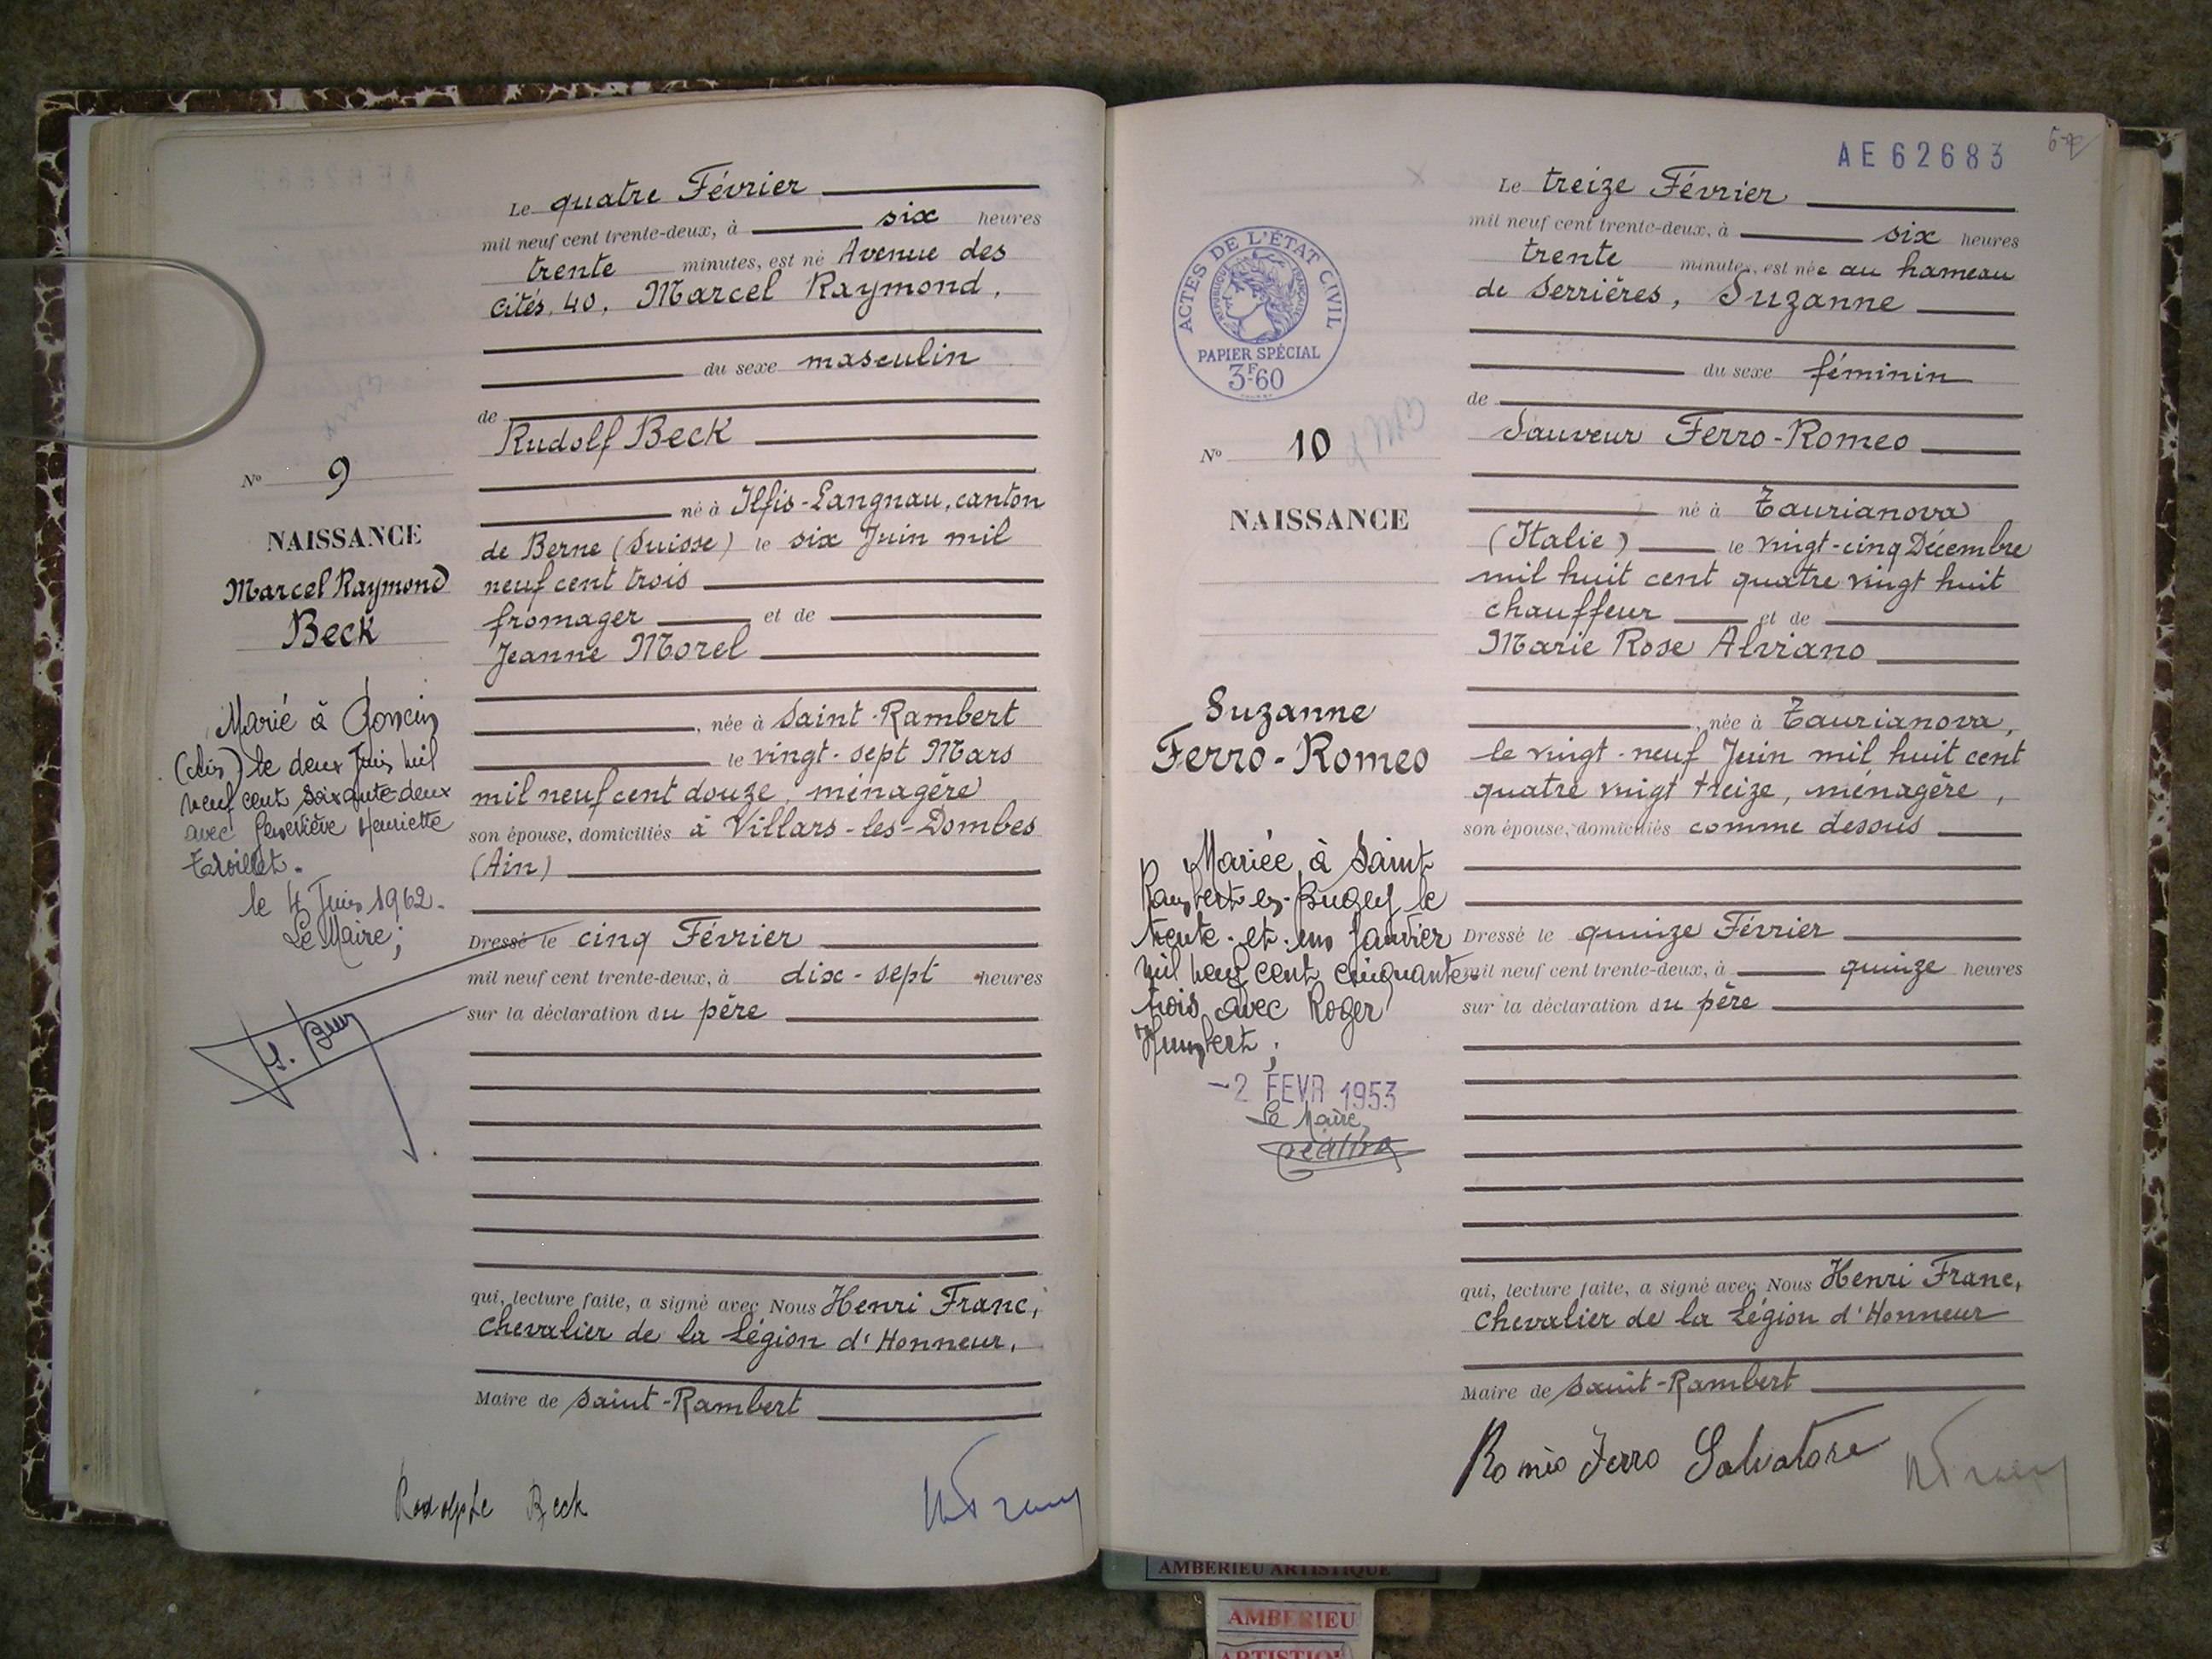 Le quatre Février
mil neuf cent trente-deux, à six heures
trente minutes, est né Avenue des
Cités, 40, Marcel Raymond,
du sexe masculin
de
Rudolf Beck
né à Ilfis-Langnau, canton
de Berne (Suisse) le six Juin mil
neuf cent trois
fromager et de
Jeanne Morel
, née à Saint-Rambert
le vingt-sept Mars
mil neuf cent douze, ménagère
son épouse, domiciliés à Villars-les-Dombes
(Ain)
Dressé le cinq Février
mil neuf cent trente-deux, à dix-sept heures
sur la déclaration du père
qui, lecture faite, a signé avec Nous Henri Franc,
Chevalier de la Légion d'Honneur,
Maire de Saint-Rambert
Rodolphe Beck
N° 9
NAISSANCE
Marcel Raymond
Beck
Marié à Poncin
(Ain) le deux Juin mil
neuf cent soixante deux
avec Geneviève Henriette
le 4 Juin 1962.
Le Maire;
AE62683
Le treize Février
mil neuf cent trente-deux, à six heures
trente minutes, est née au hameau
de Serrières, Suzanne
du sexe féminin
de
Sauveur Ferro-Romeo
né à Taurianova
(Italie) le vingt-cinq Décembre
mil huit cent quatre vingt huit
chauffeur et de
Marie Rose Alviano
, née à Taurianova,
le vingt-neuf Juin mil huit cent
quatre vingt treize, ménagère,
son épouse, domiciliés comme dessus
Dressé le quinze Février
mil neuf cent trente-deux, à quinze heures
sur la déclaration du père
qui, lecture faite, a signé avec Nous Henri Franc,
Chevalier de la Légion d'Honneur
Maire de Saint-Rambert
Roméo Ferro Salvatore
ACTES DE L'ÉTAT CIVIL
RÉPUBLIQUE FRANÇAISE
PAPIER SPÉCIAL
3F60
N° 10
NAISSANCE
Suzanne
Ferro-Romeo
Mariée à Saint
Rambert-en-Bugey le
trente-et-un Janvier
mil neuf cent cinquante
trois avec Roger
Humbert;
-2 FEVR 1953
Le Maire,
AMBERIEU ARTISTIQUE
AMBERIEU
ARTISTIQUE